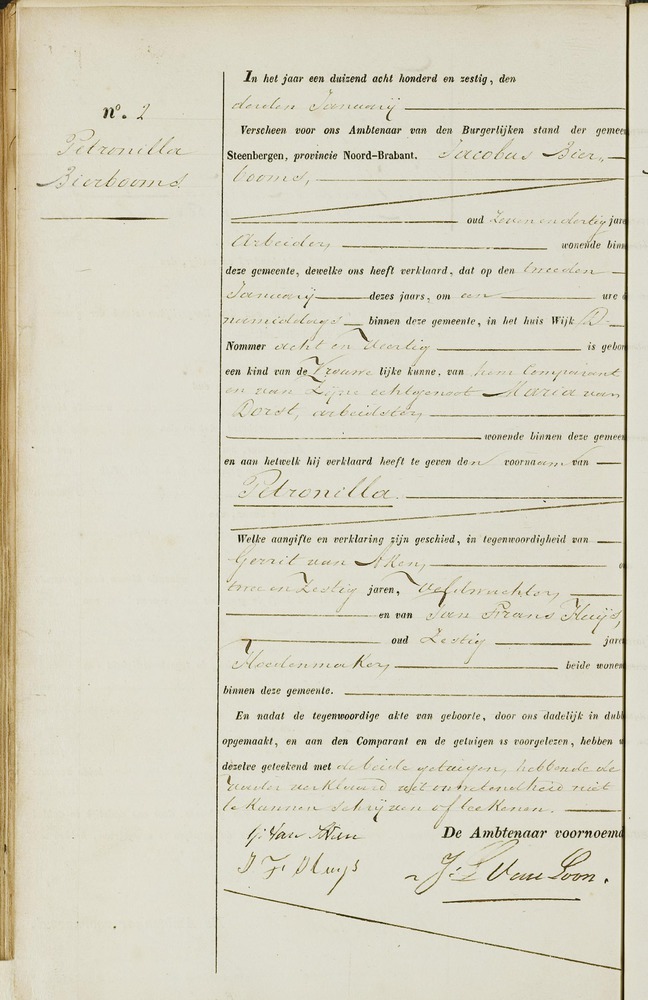 nº. 2
Petronilla
Bierbooms
In het jaar een duizend acht honderd en zestig, den
derden Januarij
Verscheen voor ons Ambtenaar van den Burgerlijken stand der gemee
Steenbergen, provincie Noord-Brabant. Jacobus Bier-
booms,
oud Zeven en dertig jare
Arbeider, wonende binn
deze gemeente, dewelke ons heeft verklaard, dat op den tweeden
Januarij dezes jaars, om een ure d
namiddags binnen deze gemeente, in het huis Wijk D
Nommer acht en Veertig is gebor
een kind van de Vrouwe lijke kunne, van hem Comparant
en van Zijne echtgenoot Maria van
Dorst, arbeidster,
wonende binnen deze gemeen
en aan hetwelk hij verklaard heeft te geven den voornaam van
Petronilla.
Welke aangifte en verklaring zijn geschied, in tegenwoordigheid van
Gerrit van Aken, o
twee en Zestig jaren, Veldwachter,
en van Jan Frans Huijs,
oud Zestig jare
Hoedenmaker, beide wonen
binnen deze gemeente.
En nadat de tegenwoordige akte van geboorte, door ons dadelijk in dubb
opgemaakt, en aan den Comparant en de getuigen is voorgelezen, hebben w
dezelve geteekend met de beide getuigen, hebbende de
vader verklaard uit onwetendheid niet
te kunnen schrijven of teekenen.
G. Van Aken
De Ambtenaar voornoemd
J F Huys
J. L Van Loon.